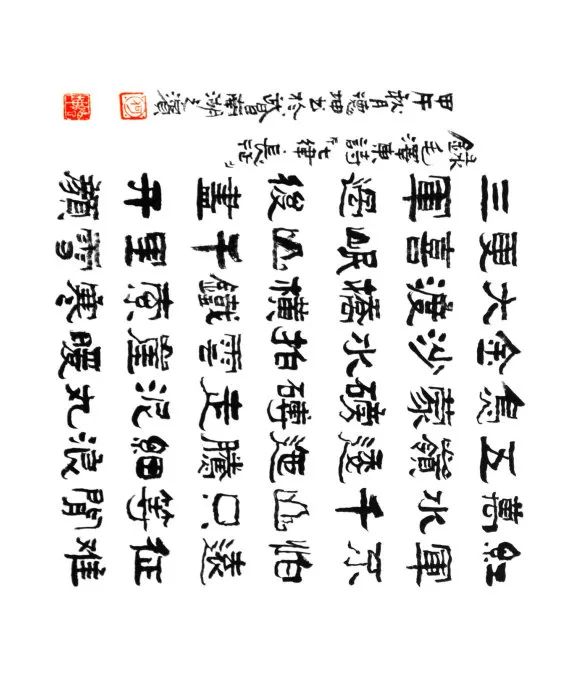 紅軍不怕遠征難
萬水千山只等閒
五嶺逶迤騰細浪
烏蒙磅礴走泥丸
金沙水拍雲崖暖
大渡橋橫鐵索寒
更喜岷山千里雪
三軍過後盡开顏
錄毛澤東詩“七律·長征”
甲午秋月德坤书於武昌南湖之濱